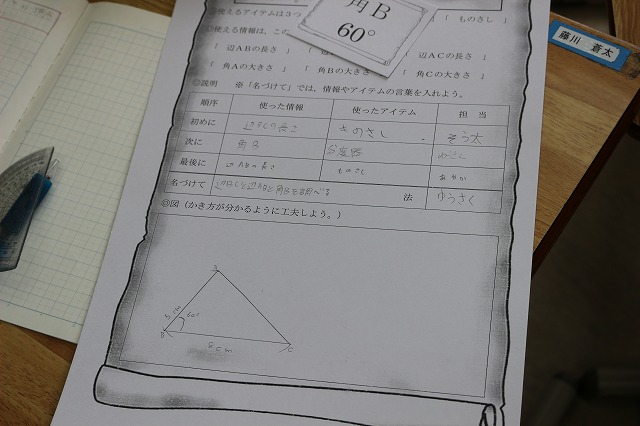 ◎使えるアイテムは３つ
「ものさし 」
角Ｂ
60°
藤川　蒼太
◎使える情報は、この
「 辺ABの長さ 」
「 辺ACの長さ 」
「 角Aの大きさ 」 「 角Bの大きさ 「 角Cの大きさ 」
◎説明　※「名づけて」では、情報やアイテムの言葉を入れよう。
順序 使った情報 使ったアイテム 担 当
初めに 辺BCの長さ ものさし そう太
次に 角B 分度器
最後に 辺ABの長さ ものさし あやか
名づけて 辺BCと辺ABと角Bを調べる 法 ゆうさく
◎図（かき方が分かるように工夫しよう。）
A
5cm 60°
B C
8cm